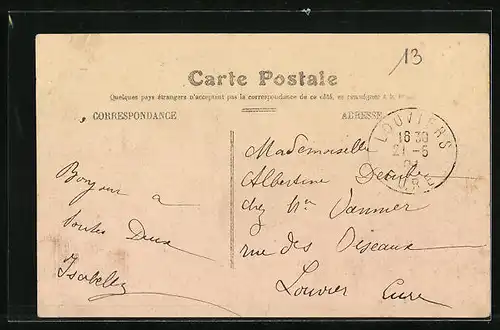 13
Carte Postale
Quelques pays étrangers n'acceptent pas la correspondance de ce côté, se renseigner à la
CORRESPONDANCE
ADRESSE
LOUVIERS
16 30
21 - 5
EURE
Bonjour a
toutes Deux
Isabelle
Mademoiselle
Albertine
chez Mr Vannier
rue des Oiseaux
Louvier Eure